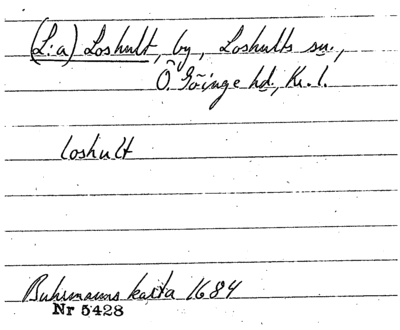 (L:a) Loshult, by, Loshults sn.,
Ö. Göinge hd, Kr. l.
loshult
Buhrmanns karta 1684
Nr 5428